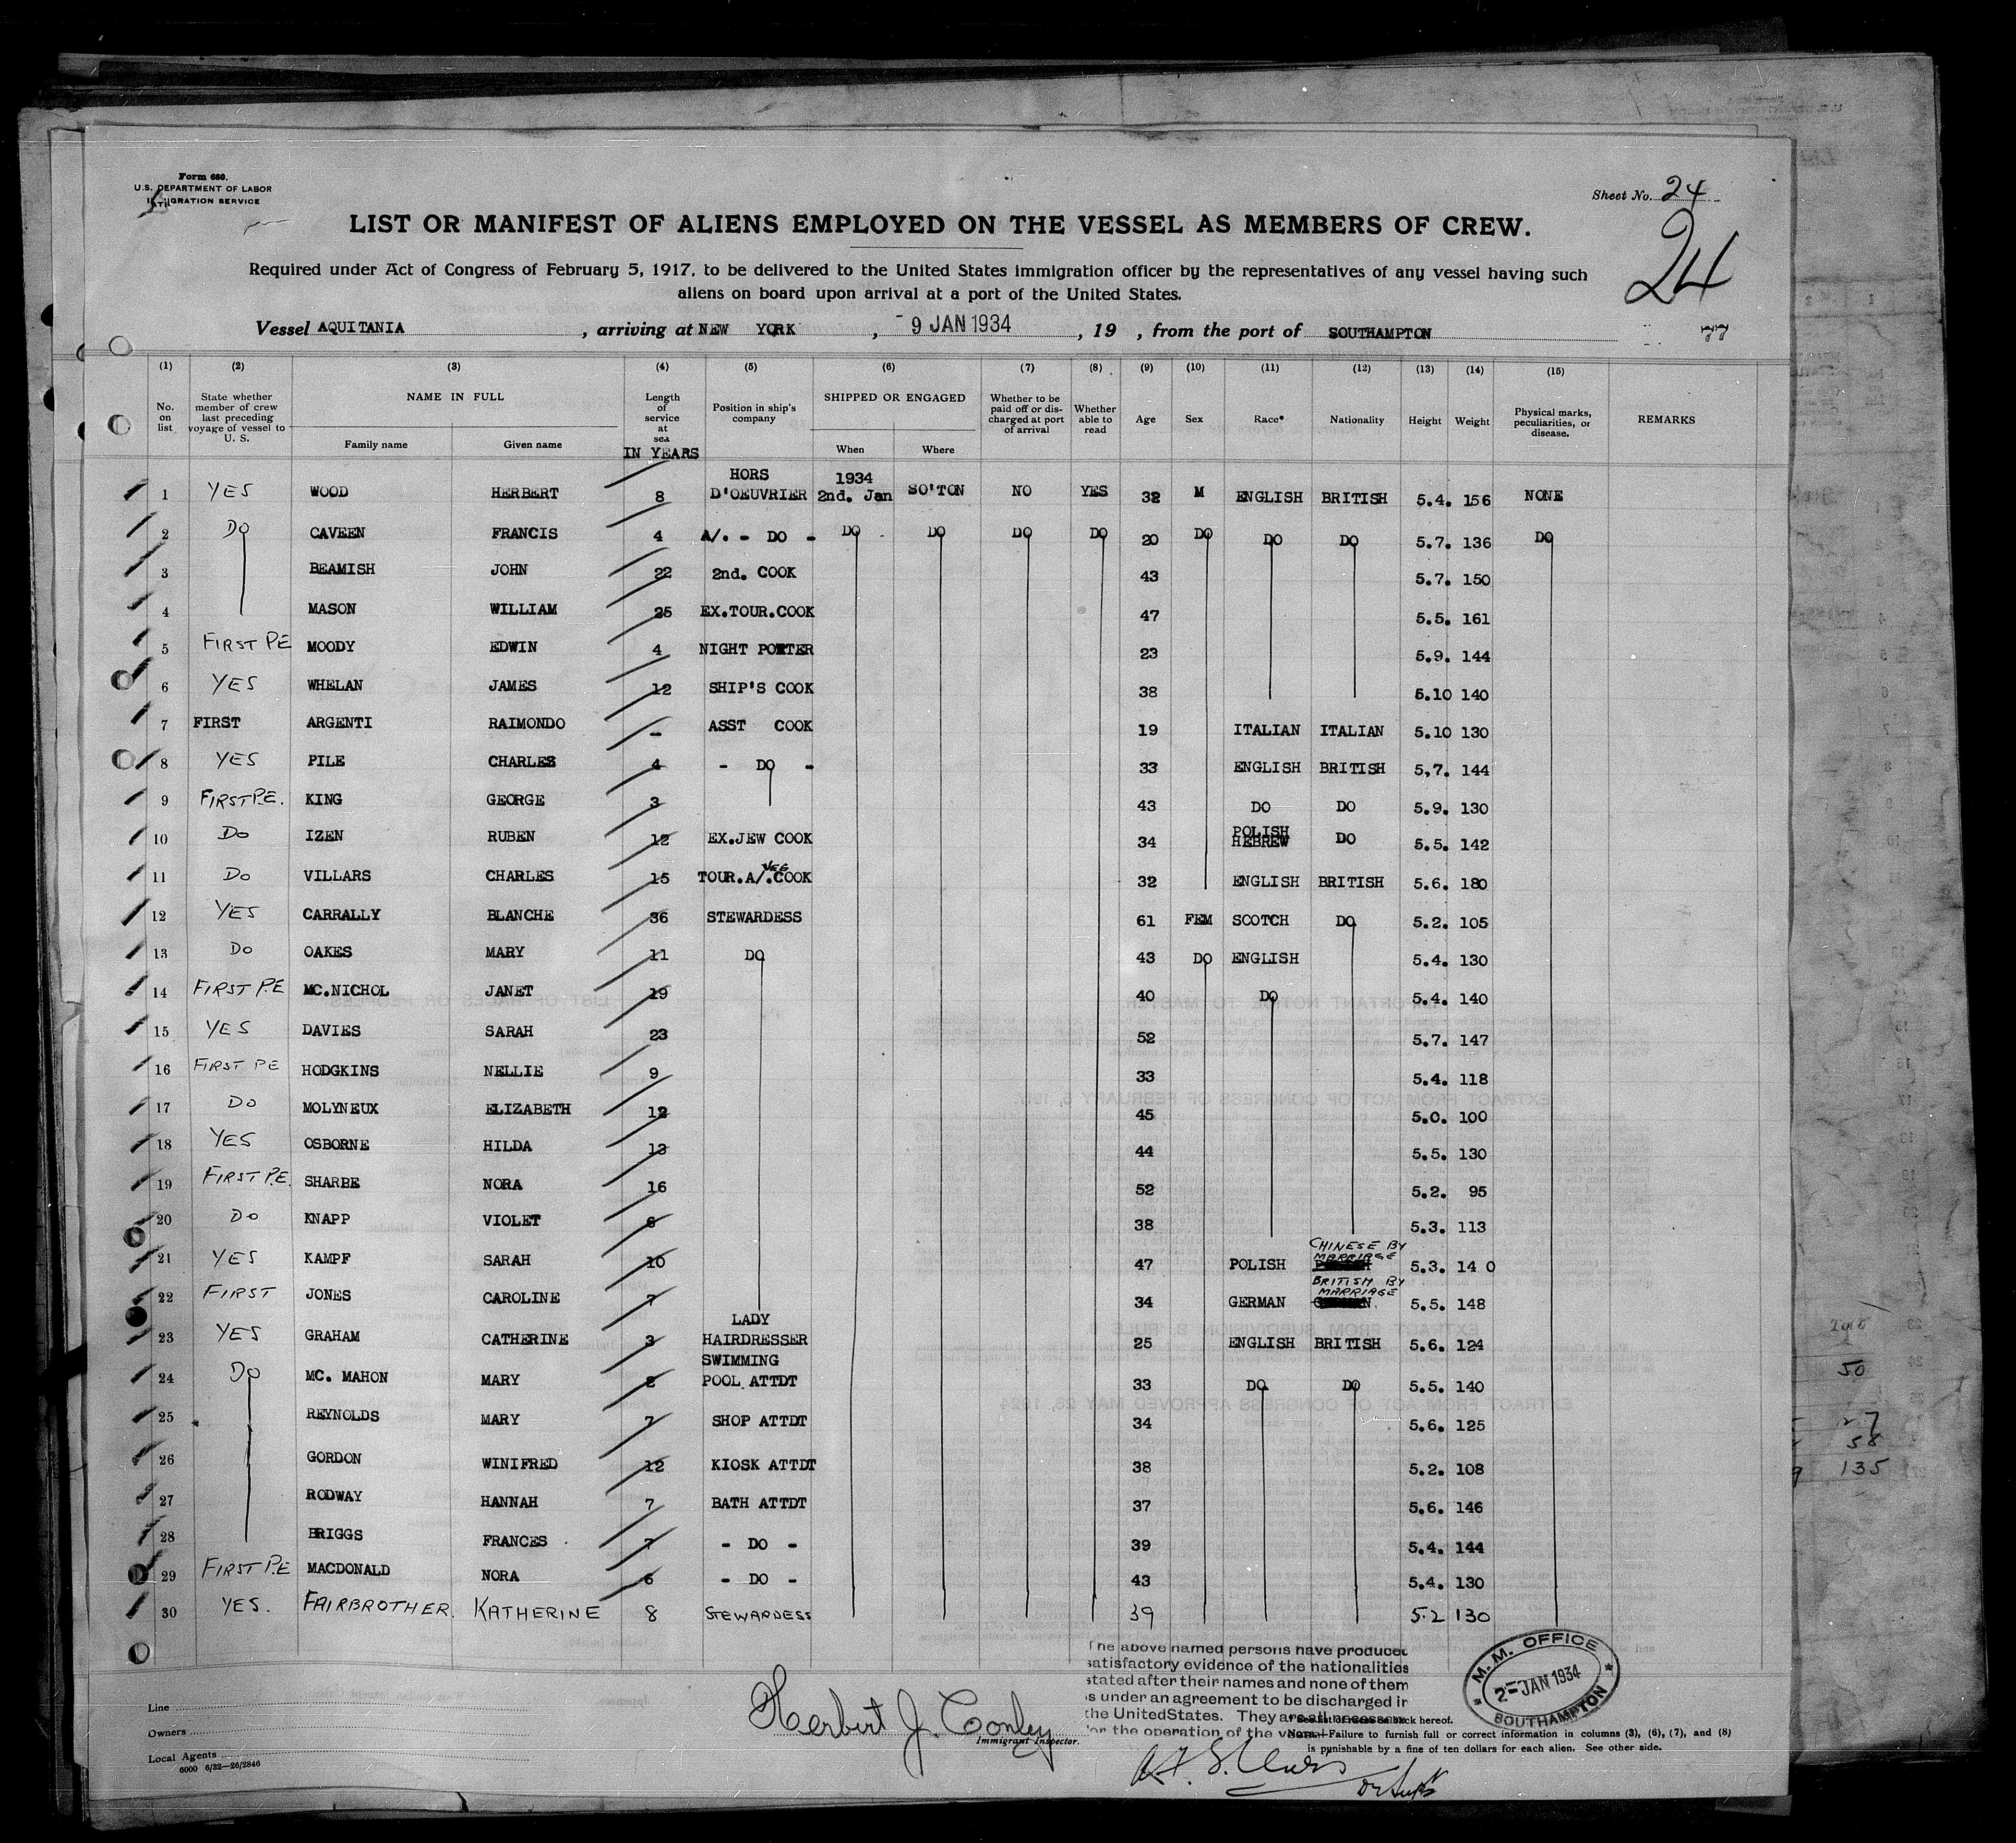 Form 680.
U.S. DEPARTMENT OF LABOR
IMMIGRATION SERVICE
Sheet No. 24
24
LIST OR MANIFEST OF ALIENS EMPLOYED ON THE VESSEL AS MEMBERS OF CREW.
Required under Act of Congress of February 5, 1917, to be delivered to the United States immigration officer by the representatives of any vessel having such
aliens on board upon arrival at a port of the United States.
Vessel AQUITANIA, arriving at NEW YORK, - 9 JAN 1934, 19 , from the port of SOUTHAMPTON
77
(1) (2) (3) (4) (5) (6) (7) (8) (9) (10) (11) (12) (13) (14) (15)
No. on list State whether member of crew last preceding voyage of vessel to U. S. NAME IN FULL Family name Given name Length of service at sea IN YEARS Position in ship's company SHIPPED OR ENGAGED When Where Whether to be paid off or discharged at port of arrival Whether able to read Age Sex Race* Nationality Height Weight Physical marks, peculiarities, or disease. REMARKS
1 YES WOOD HERBERT 8 HORS D'OEUVRIER 1934 2nd. Jan SO'TON NO YES 32 M ENGLISH BRITISH 5.4. 156 NONE
2 DO CAVEEN FRANCIS 4 A/. - DO - DO DO DO DO 20 DO DO DO 5.7. 136 DO
3 BEAMISH JOHN 22 2nd. COOK 43 5.7. 150
4 MASON WILLIAM 25 EX.TOUR.COOK 47 5.5. 161
5 FIRST P.E MOODY EDWIN 4 NIGHT PORTER 23 5.9. 144
6 YES WHELAN JAMES 12 SHIP'S COOK 38 5.10 140
7 FIRST ARGENTI RAIMONDO - ASST COOK 19 ITALIAN ITALIAN 5.10 130
8 YES PILE CHARLES 4 - DO - 33 ENGLISH BRITISH 5,7. 144
9 FIRST P.E. KING GEORGE 3 43 DO DO 5.9. 130
10 DO IZEN RUBEN 12 EX.JEW COOK 34 POLISH HEBREW DO 5.5. 142
11 DO VILLARS CHARLES 15 TOUR.A/.VEG COOK 32 ENGLISH BRITISH 5.6. 180
12 YES CARRALLY BLANCHE 36 STEWARDESS 61 FEM SCOTCH DO 5.2. 105
13 DO OAKES MARY 11 DO 43 DO ENGLISH 5.4. 130
14 FIRST P.E MC.NICHOL JANET 19 40 DO 5.4. 140
15 YES DAVIES SARAH 23 52 5.7. 147
16 FIRST PE HODGKINS NELLIE 9 33 5.4. 118
17 DO MOLYNEUX ELIZABETH 12 45 5.0. 100
18 YES OSBORNE HILDA 13 44 5.5. 130
19 FIRST P.E. SHARBE NORA 16 52 5.2. 95
20 DO KNAPP VIOLET 6 38 5.3. 113
21 YES KAMPF SARAH 10 47 POLISH CHINESE BY MARRIAGE 5.3. 14 0
22 FIRST JONES CAROLINE 7 34 GERMAN BRITISH BY MARRIAGE 5.5. 148
23 YES GRAHAM CATHERINE 3 LADY HAIRDRESSER 25 ENGLISH BRITISH 5.6. 124
24 DO MC. MAHON MARY 2 SWIMMING POOL ATTDT 33 DO DO 5.5. 140
25 REYNOLDS MARY 7 SHOP ATTDT 34 5.6. 125
26 GORDON WINIFRED 12 KIOSK ATTDT 38 5.2. 108
27 RODWAY HANNAH 7 BATH ATTDT 37 5.6. 146
28 BRIGGS FRANCES 7 - DO - 39 5.4. 144
29 FIRST P.E MACDONALD NORA 6 - DO - 43 5.4. 130
30 YES. FAIRBROTHER. KATHERINE 8 STEWARDESS 39 5.2 130
The above named persons have produced
satisfactory evidence of the nationalities
stated after their names and none of them
is under an agreement to be discharged in
the United States. They are all necessary
for the operation of the vessel
M. M. OFFICE
2 - JAN 1934
SOUTHAMPTON
Line
Owners
Local Agents
6000 6/32—26/2846
Herbert J. Conley
Immigrant Inspector.
back hereof.
NOTE.—Failure to furnish full or correct information in columns (3), (6), (7), and (8)
is punishable by a fine of ten dollars for each alien. See other side.
50
27
58
135